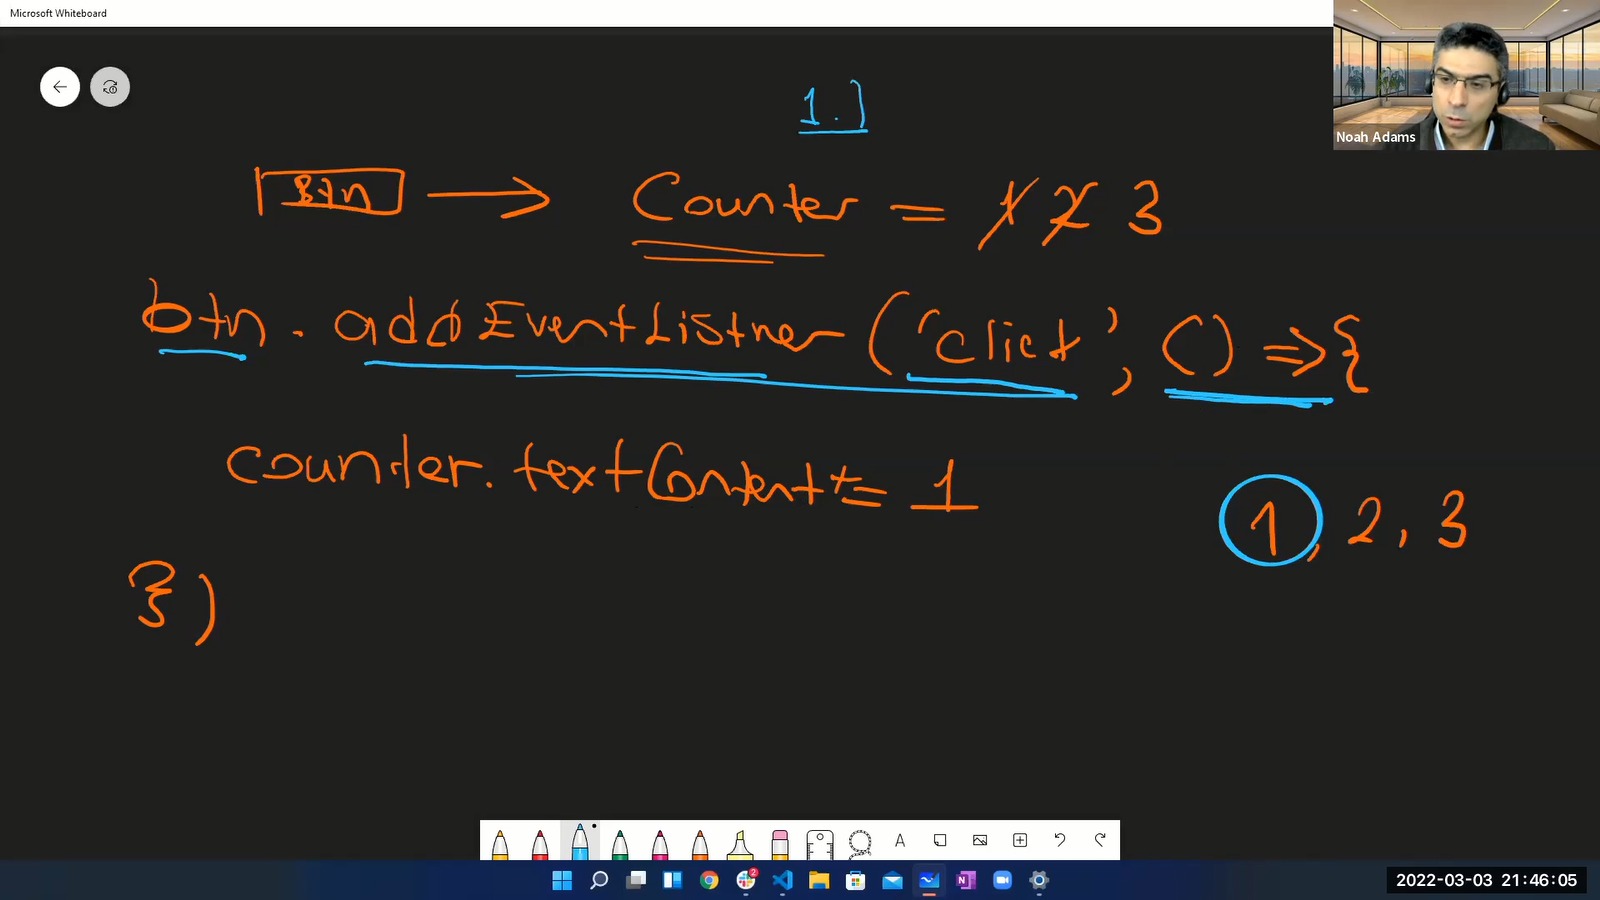 Microsoft Whiteboard
Noah Adams
1.
Btn → Counter = 1 2 3
btn . addEventListner ( 'click' , () => {
counter. textContent += 1
1, 2, 3
})
A
2
N
2022-03-03 21:46:05